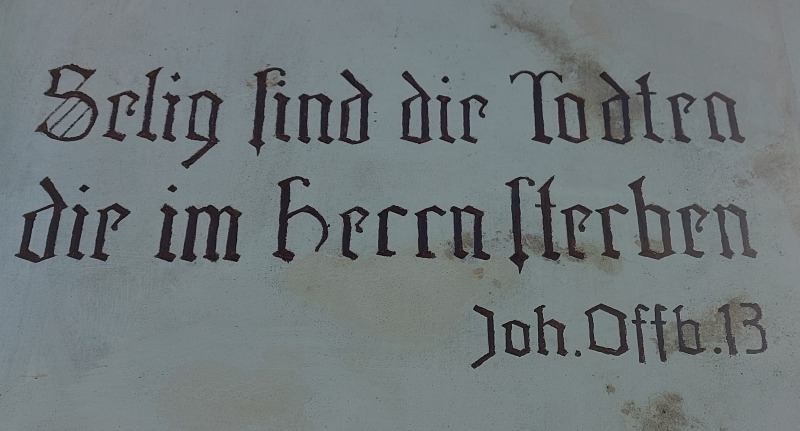 Selig ſind die Todten
die im Herrn ſterben
Joh. Offb. 13